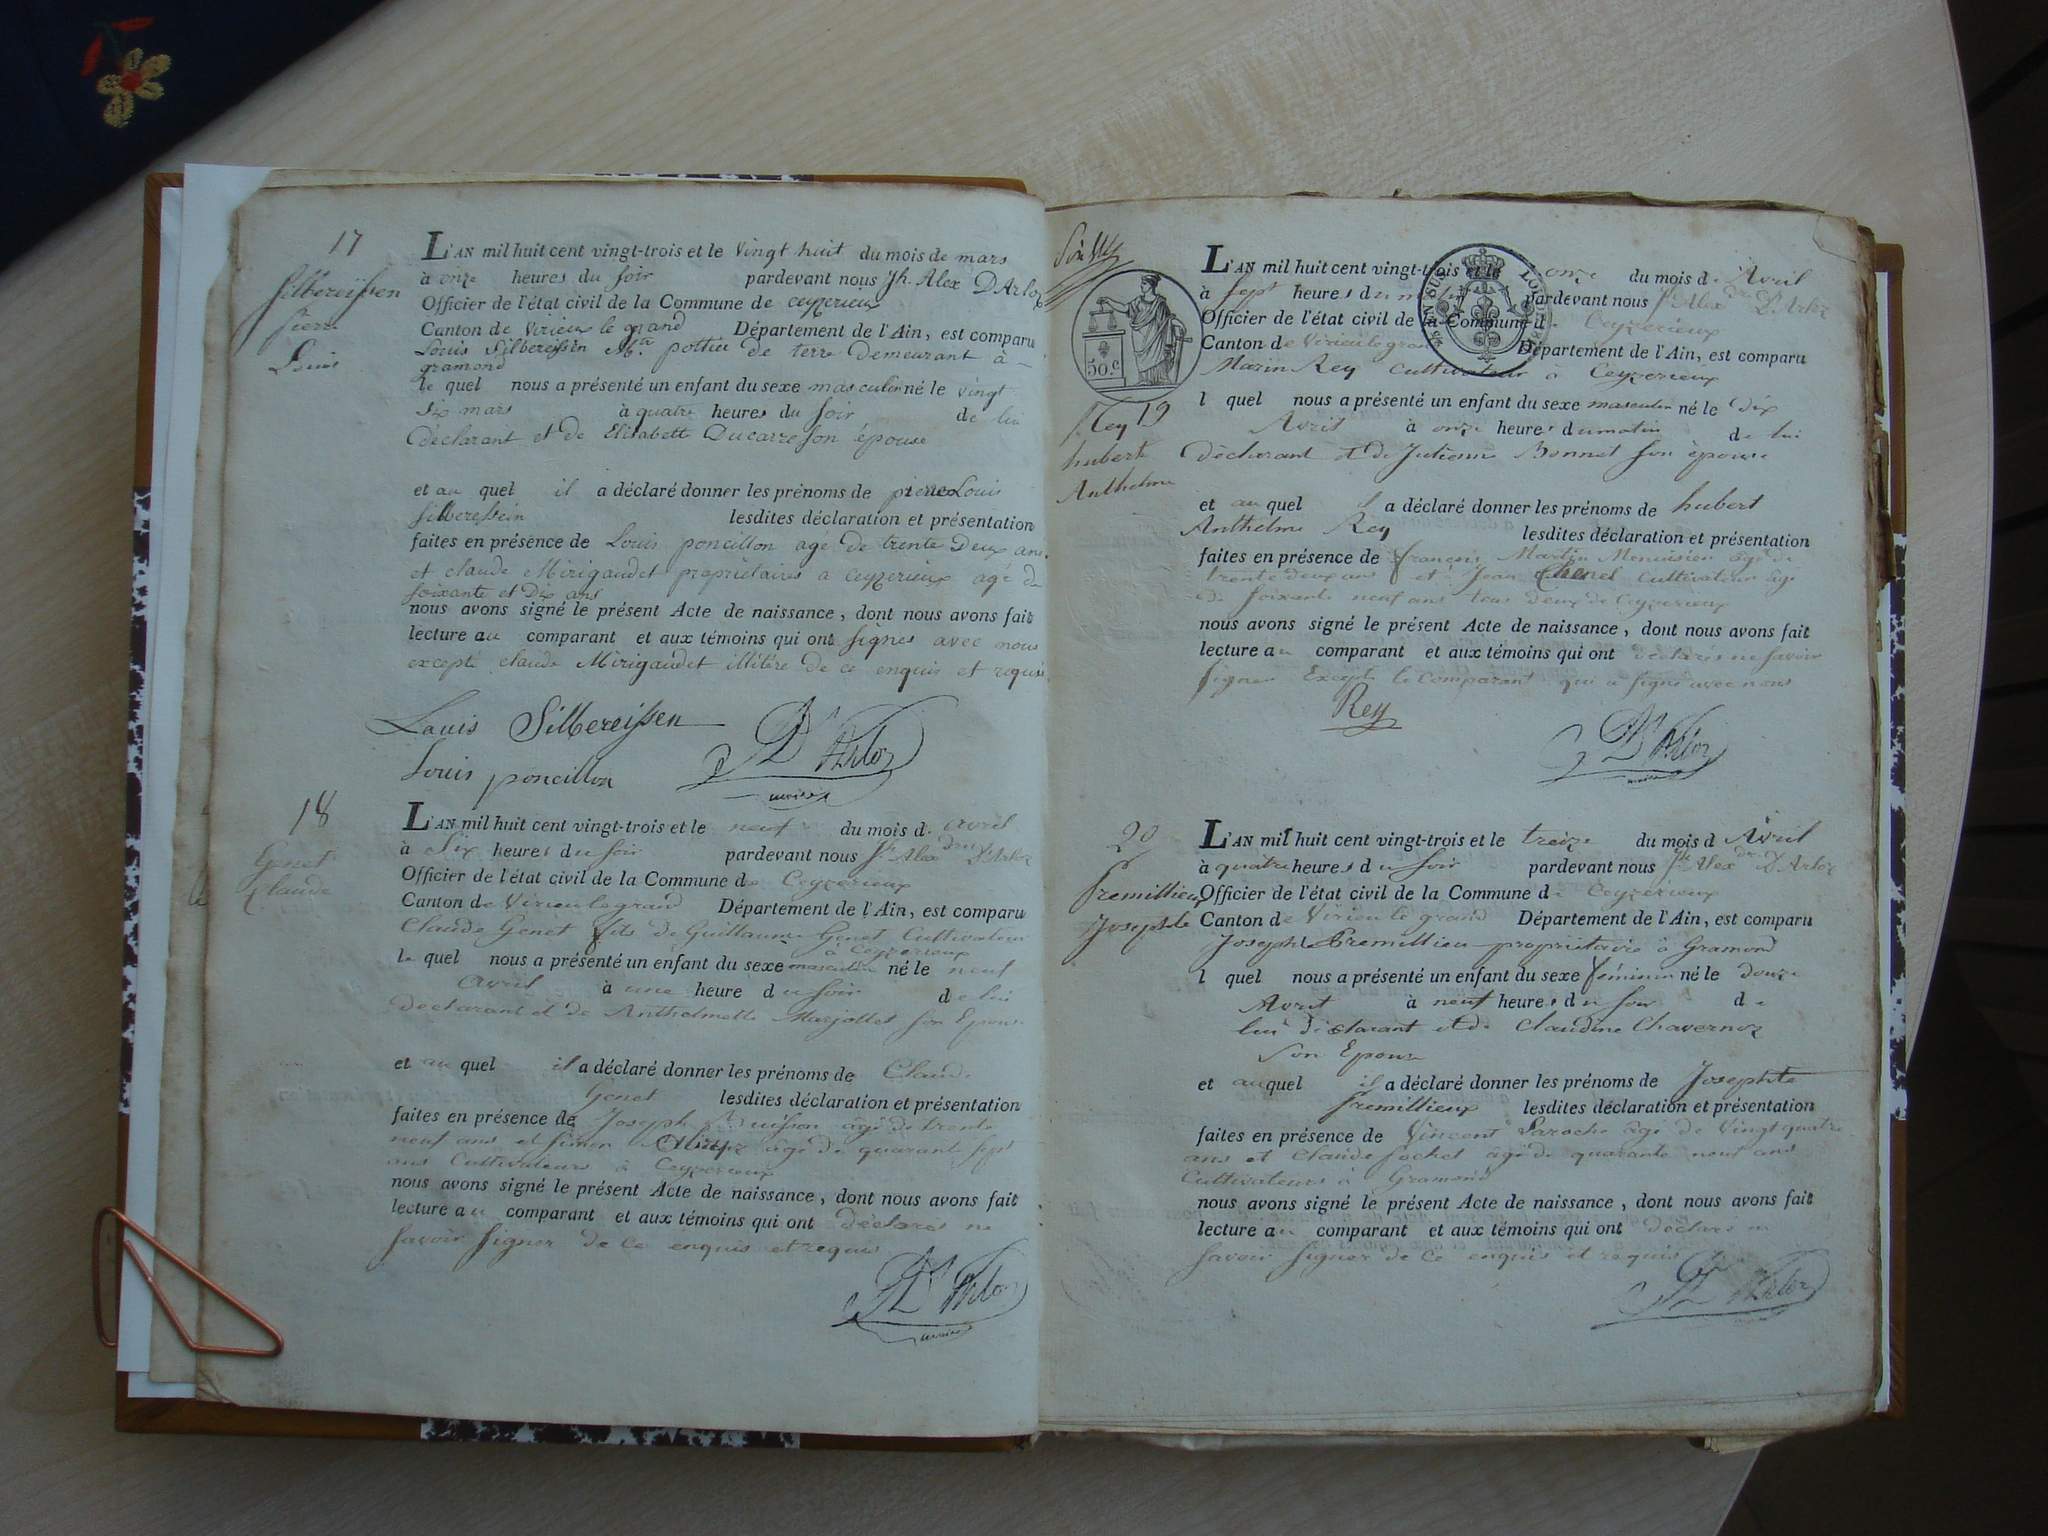 17
Silbereissen
pierre
Louis
L'AN mil huit cent vingt-trois et le Vingt huit du mois de mars
à onze heures du soir pardevant nous Jh. Alex D'Arloz
Officier de l'état civil de la Commune de ceyzerieux
Canton de Virieux le grand Département de l'Ain, est comparu
Louis Silbereissen Md pottier de terre Demeurant à
gramond
le quel nous a présenté un enfant du sexe masculin né le vingt
six mars à quatre heures du soir de lui
déclarant et de Elisabette Ducarre son épouse
et au quel il a déclaré donner les prénoms de pierre Louis
Silbereissein lesdites déclaration et présentation
faites en présence de Louis poncillon agé de trente Deux ans
et claude Mirigaudet propriétaires a ceyzerieux agé de
soixante et Dix ans
nous avons signé le présent Acte de naissance, dont nous avons fait
lecture au comparant et aux témoins qui ont signés avec nous
excepté claude Mirigaudet illitéré de ce enquis et requis
Louis Silbereissen
Louis poncillon
D'Arloz
maire
18
Genet
Claude
L'AN mil huit cent vingt-trois et le neuf du mois d. avril
à Six heures du soir pardevant nous Jh Alexdre D'Arloz
Officier de l'état civil de la Commune de Ceyzerieux
Canton de Virieu le grand Département de l'Ain, est comparu
Claude Genet fils de Guillaume Genet Cultivateur
à Ceyzerieux
le quel nous a présenté un enfant du sexe masculin né le neuf
avril à une heure du soir de lui
déclarant et de Anthelmette Marjollet son Epouse
et au quel il a déclaré donner les prénoms de Claude
Genet lesdites déclaration et présentation
faites en présence de Joseph Buisson âgé de trente
neuf ans et Simon âgé de quarante sept
ans Cultivateurs à Ceyzerieux
nous avons signé le présent Acte de naissance, dont nous avons fait
lecture au comparant et aux témoins qui ont déclarés ne
savoir signer de ce enquis et requis
D'Arloz
maire
50.c
19
Rey
hubert
Anthelme
L'AN mil huit cent vingt-trois et le onze du mois de Avril
à sept heures du matin pardevant nous Jh Alexdre D'Arloz
Officier de l'état civil de la Commune de Ceyzerieux
Canton de Virieu le grand Département de l'Ain, est comparu
Marin Rey Cultivateur à Ceyzerieux
l quel nous a présenté un enfant du sexe masculin né le dix
Avril à onze heures du matin de lui
déclarant et de Julienne Bonnet son épouse
et au quel il a déclaré donner les prénoms de hubert
Anthelme Rey lesdites déclaration et présentation
faites en présence de françois Martin Menuisier âgé de
trente deux ans et Jean Chenel Cultivateur âgé
de soixante neuf ans tous deux de Ceyzerieux
nous avons signé le présent Acte de naissance, dont nous avons fait
lecture au comparant et aux témoins qui ont déclarés ne savoir
signer Excepté le Comparant qui a signé avec nous
Rey
D'Arloz
maire
20
Premillieux
Josephte
L'AN mil huit cent vingt-trois et le treize du mois d Avril
à quatre heures du soir pardevant nous Jh Alexdre D'Arloz
Officier de l'état civil de la Commune de Ceyzerieux
Canton de Virieu le grand Département de l'Ain, est comparu
Joseph Premillieu propriétaire à Gramond
l quel nous a présenté un enfant du sexe féminin né le douze
Avril à neuf heures du soir de
lui déclarant et de Claudine Chavernoz
son Epouse
et au quel il a déclaré donner les prénoms de Josephte
Premillieux lesdites déclaration et présentation
faites en présence de Vincent Laroche âgé de Vingt quatre
ans et Claude Sochet âgé de quarante neuf ans
Cultivateurs à Gramond
nous avons signé le présent Acte de naissance, dont nous avons fait
lecture au comparant et aux témoins qui ont déclaré ne
savoir signer de ce enquis et requis
D'Arloz